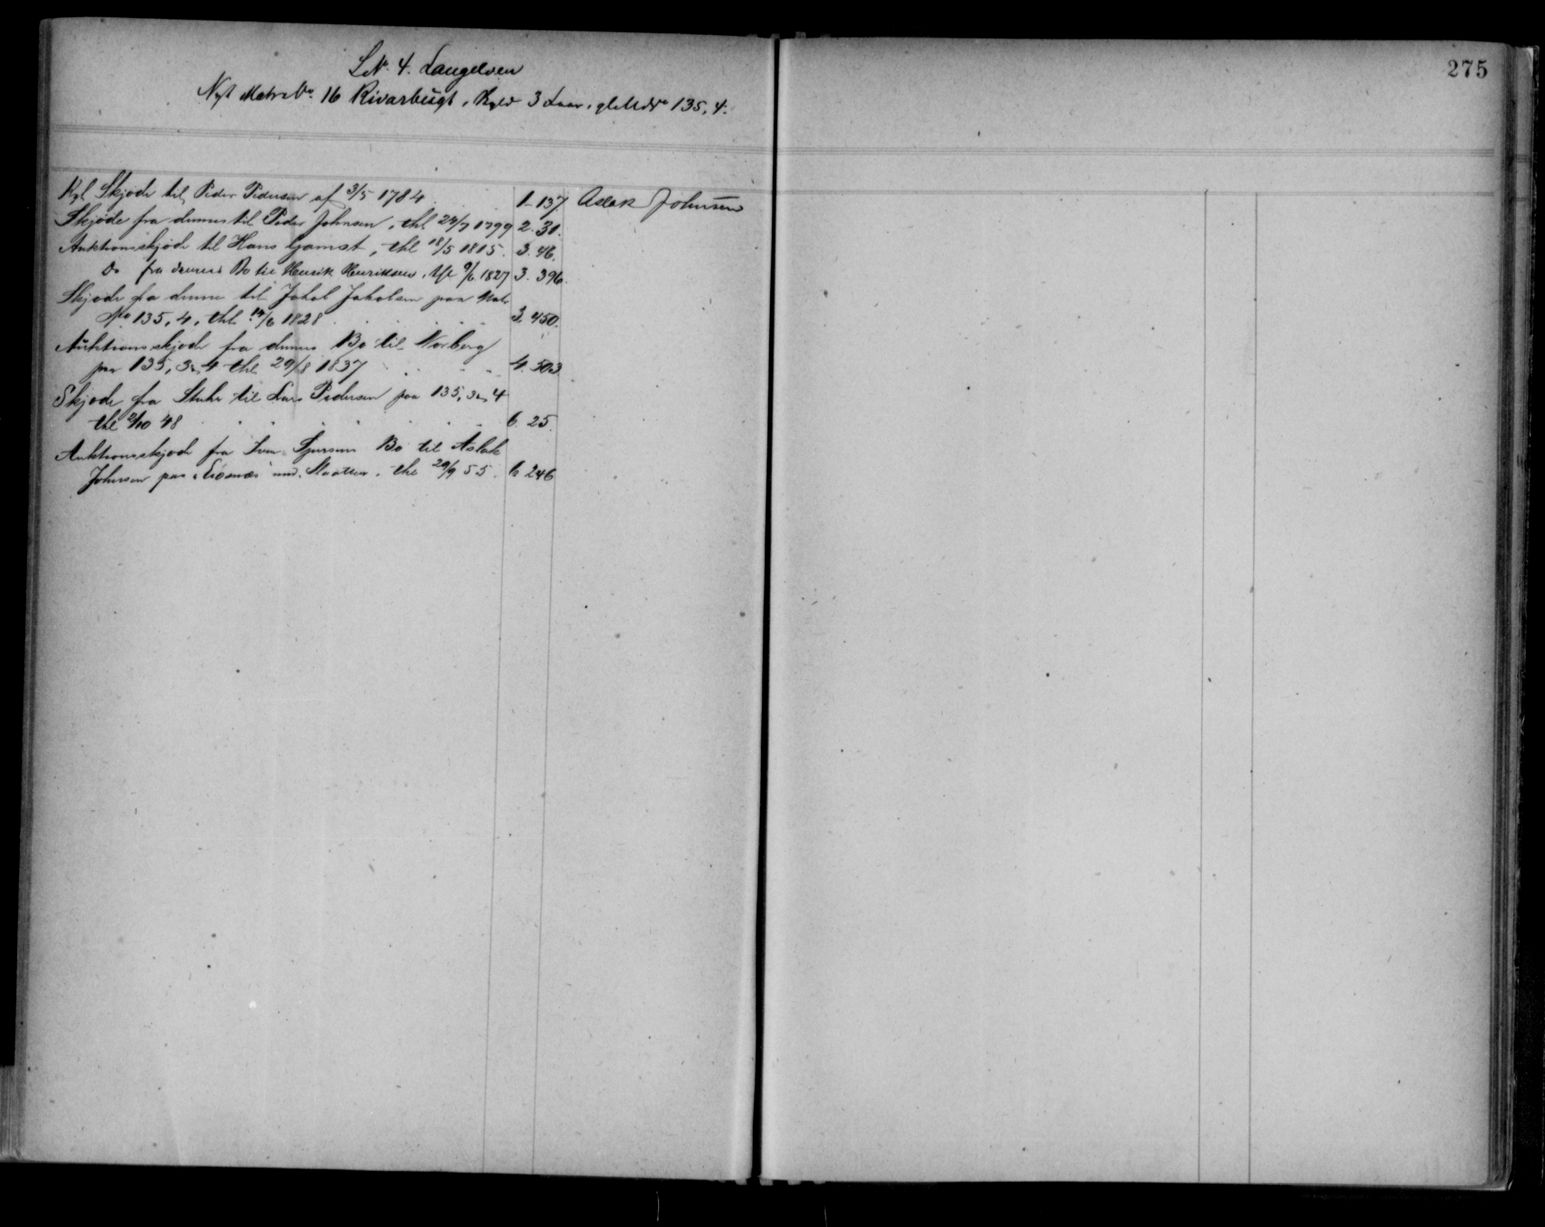 275
LN. 4. Langelven
Nyt Matr No. 16 Rivarbugt, Skyld 3 Laar, gl. M No 135, 4.
Kgl Skjøde til Peder Pedersen af 3/5 1784 1. 137 Aslak Johnsen
Skjøde fra denne til Peder Johnsen, thl. 24/7 1799 2. 30.
Auktionsskjøde til Hans Gamst, thl 18/5 1815. 3. 46.
Do fra dennes Bo til Henrik Henriksen, thl 9/6 1827 3. 396.
Skjøde fra denne til Jakob Jakobsen paa Mat.
No 135, 4, thl. 1828 3. 450.
Auktionsskjøde fra dennes Bo til Norberg
paa 135, 3 4 thl 29/8 1837 4. 503
Skjøde fra til Lars Pedersen paa 135, 3 4
thl 2/10 48 6. 25.
Auktionsskjøde fra Iver Bo til Aslak
Johnsen paa thl 29/9 55. 6 246